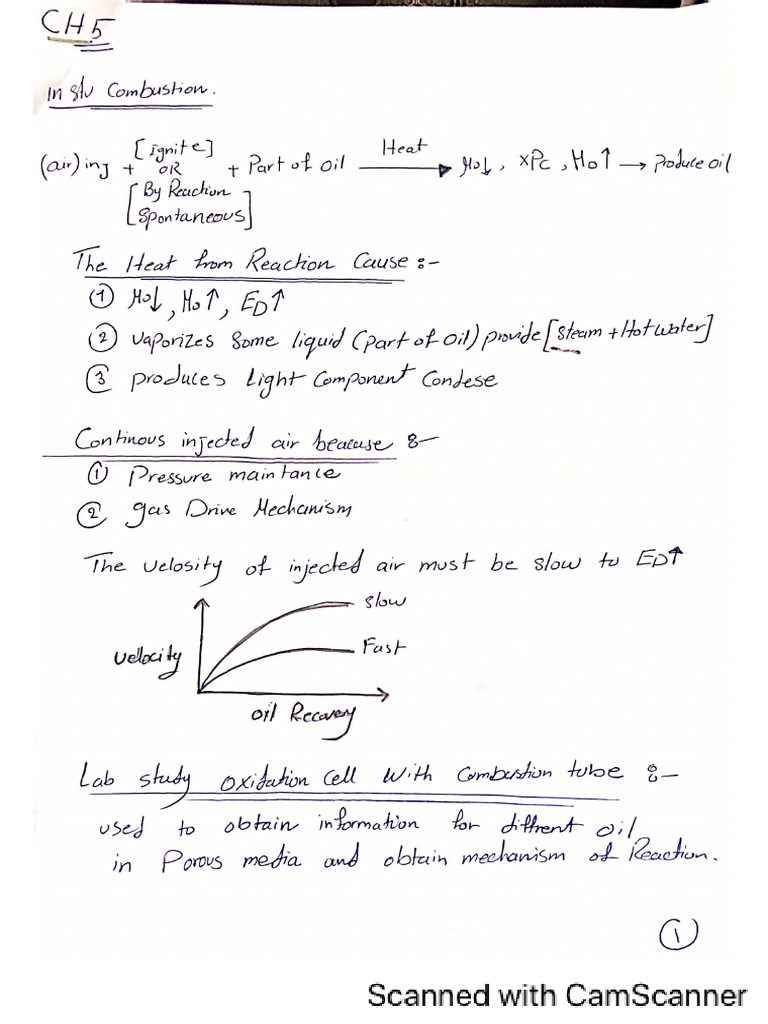 CH5
In stu Combustion.
(air) inj + [ignite] OR [By Reaction Spontaneous] + Part of oil Heat → Mo↓, xPc, Mo↑ → Produce oil
The Heat from Reaction Cause :-
① Mo↓, Mo↑, ED↑
② vaporizes Some liquid (part of oil) provide [steam + Hot water]
③ produces Light Component Condese
Continous injected air beacuse :-
① Pressure maintance
② gas Drive Mechanism
The velosity of injected air must be slow to ED↑
Slow
Fast
velocity
oil Recovery
Lab study oxidation Cell With Combustion tube :-
used to obtain information for diffrent oil
in Porous media and obtain mechanism of Reaction.
①
Scanned with CamScanner